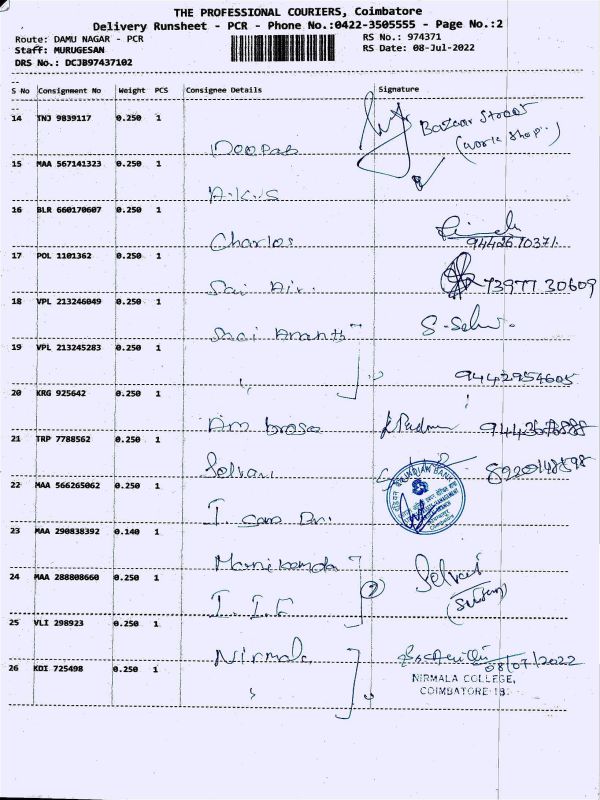 THE PROFESSIONAL COURIERS, Coimbatore
Delivery Runsheet - PCR - Phone No.:0422-3505555 - Page No.:2
Route: DAMU NAGAR - PCR
RS No.: 974371
Staff: MURUGESAN
RS Date: 08-Jul-2022
DRS No.: DCJB97437102
S No Consignment No Weight PCS Consignee Details Signature
14 TNJ 9839117 0.250 1 Deepab Bazaar Street
(work shop.)
15 MAA 567141323 0.250 1 A.K.S
16 BLR 660170607 0.250 1 Charlos
9442670371
17 POL 1101362 0.250 1 Sai Air. 73977 30609
18 VPL 213246049 0.250 1 Sai Ananth S-Selv.
19 VPL 213245283 0.250 1 " 9442954605
20 KRG 925642 0.250 1 Am brose
21 TRP 7788562 0.250 1 Selvan
INDIAN BANK
22 MAA 566265062 0.250 1
23 MAA 290838392 0.140 1 Manikanda
24 MAA 288808660 0.250 1 2 Selvan
25 VLI 298923 0.250 1 Nirmala 08/07/2022
26 KDI 725498 0.250 1 "
NIRMALA COLLEGE,
COIMBATORE-18.